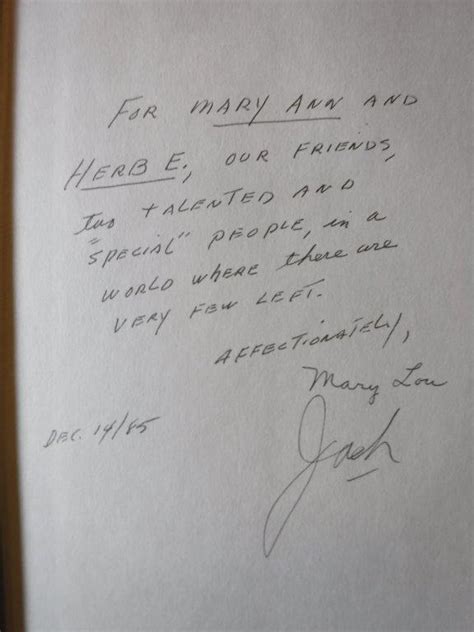 FOR MARY ANN AND
HERB E., OUR FRIENDS,
two tALENTED AND
"SPECIAL" PEOPLE, in a
WORLD WHERE there are
VERY FEW LEFT.
AFFECTIONATELY,
Mary Lou
DEC. 14/85
Jack